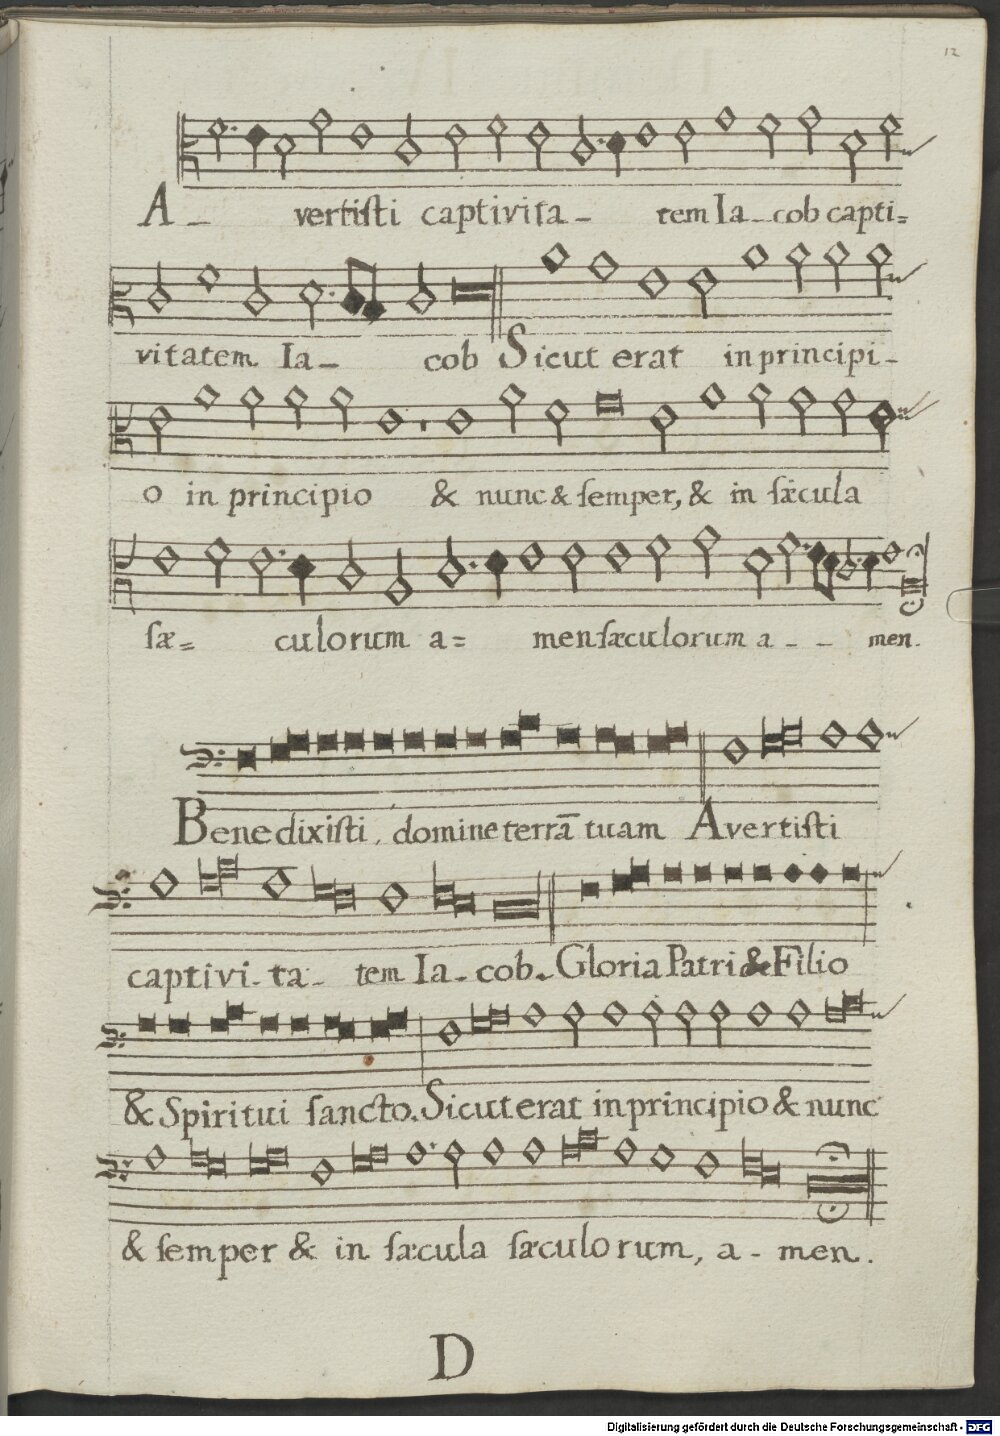 12
A - vertiſti captivita - tem Ia - cob capti=
vitatem Ia - cob Sicut erat in principi -
o in principio & nunc & ſemper, & in ſæcula
ſæ= culorum a= men ſæculorum a - - men.
Benedixiſti, domine terrā tuam Avertiſti
captivi - ta - tem Ia - cob. Gloria Patri & Filio
& Spiritui ſancto. Sicut erat in principio & nunc
& ſemper & in ſæcula ſæculorum, a - men.
D
Digitalisierung gefördert durch die Deutsche Forschungsgemeinschaft - DFG